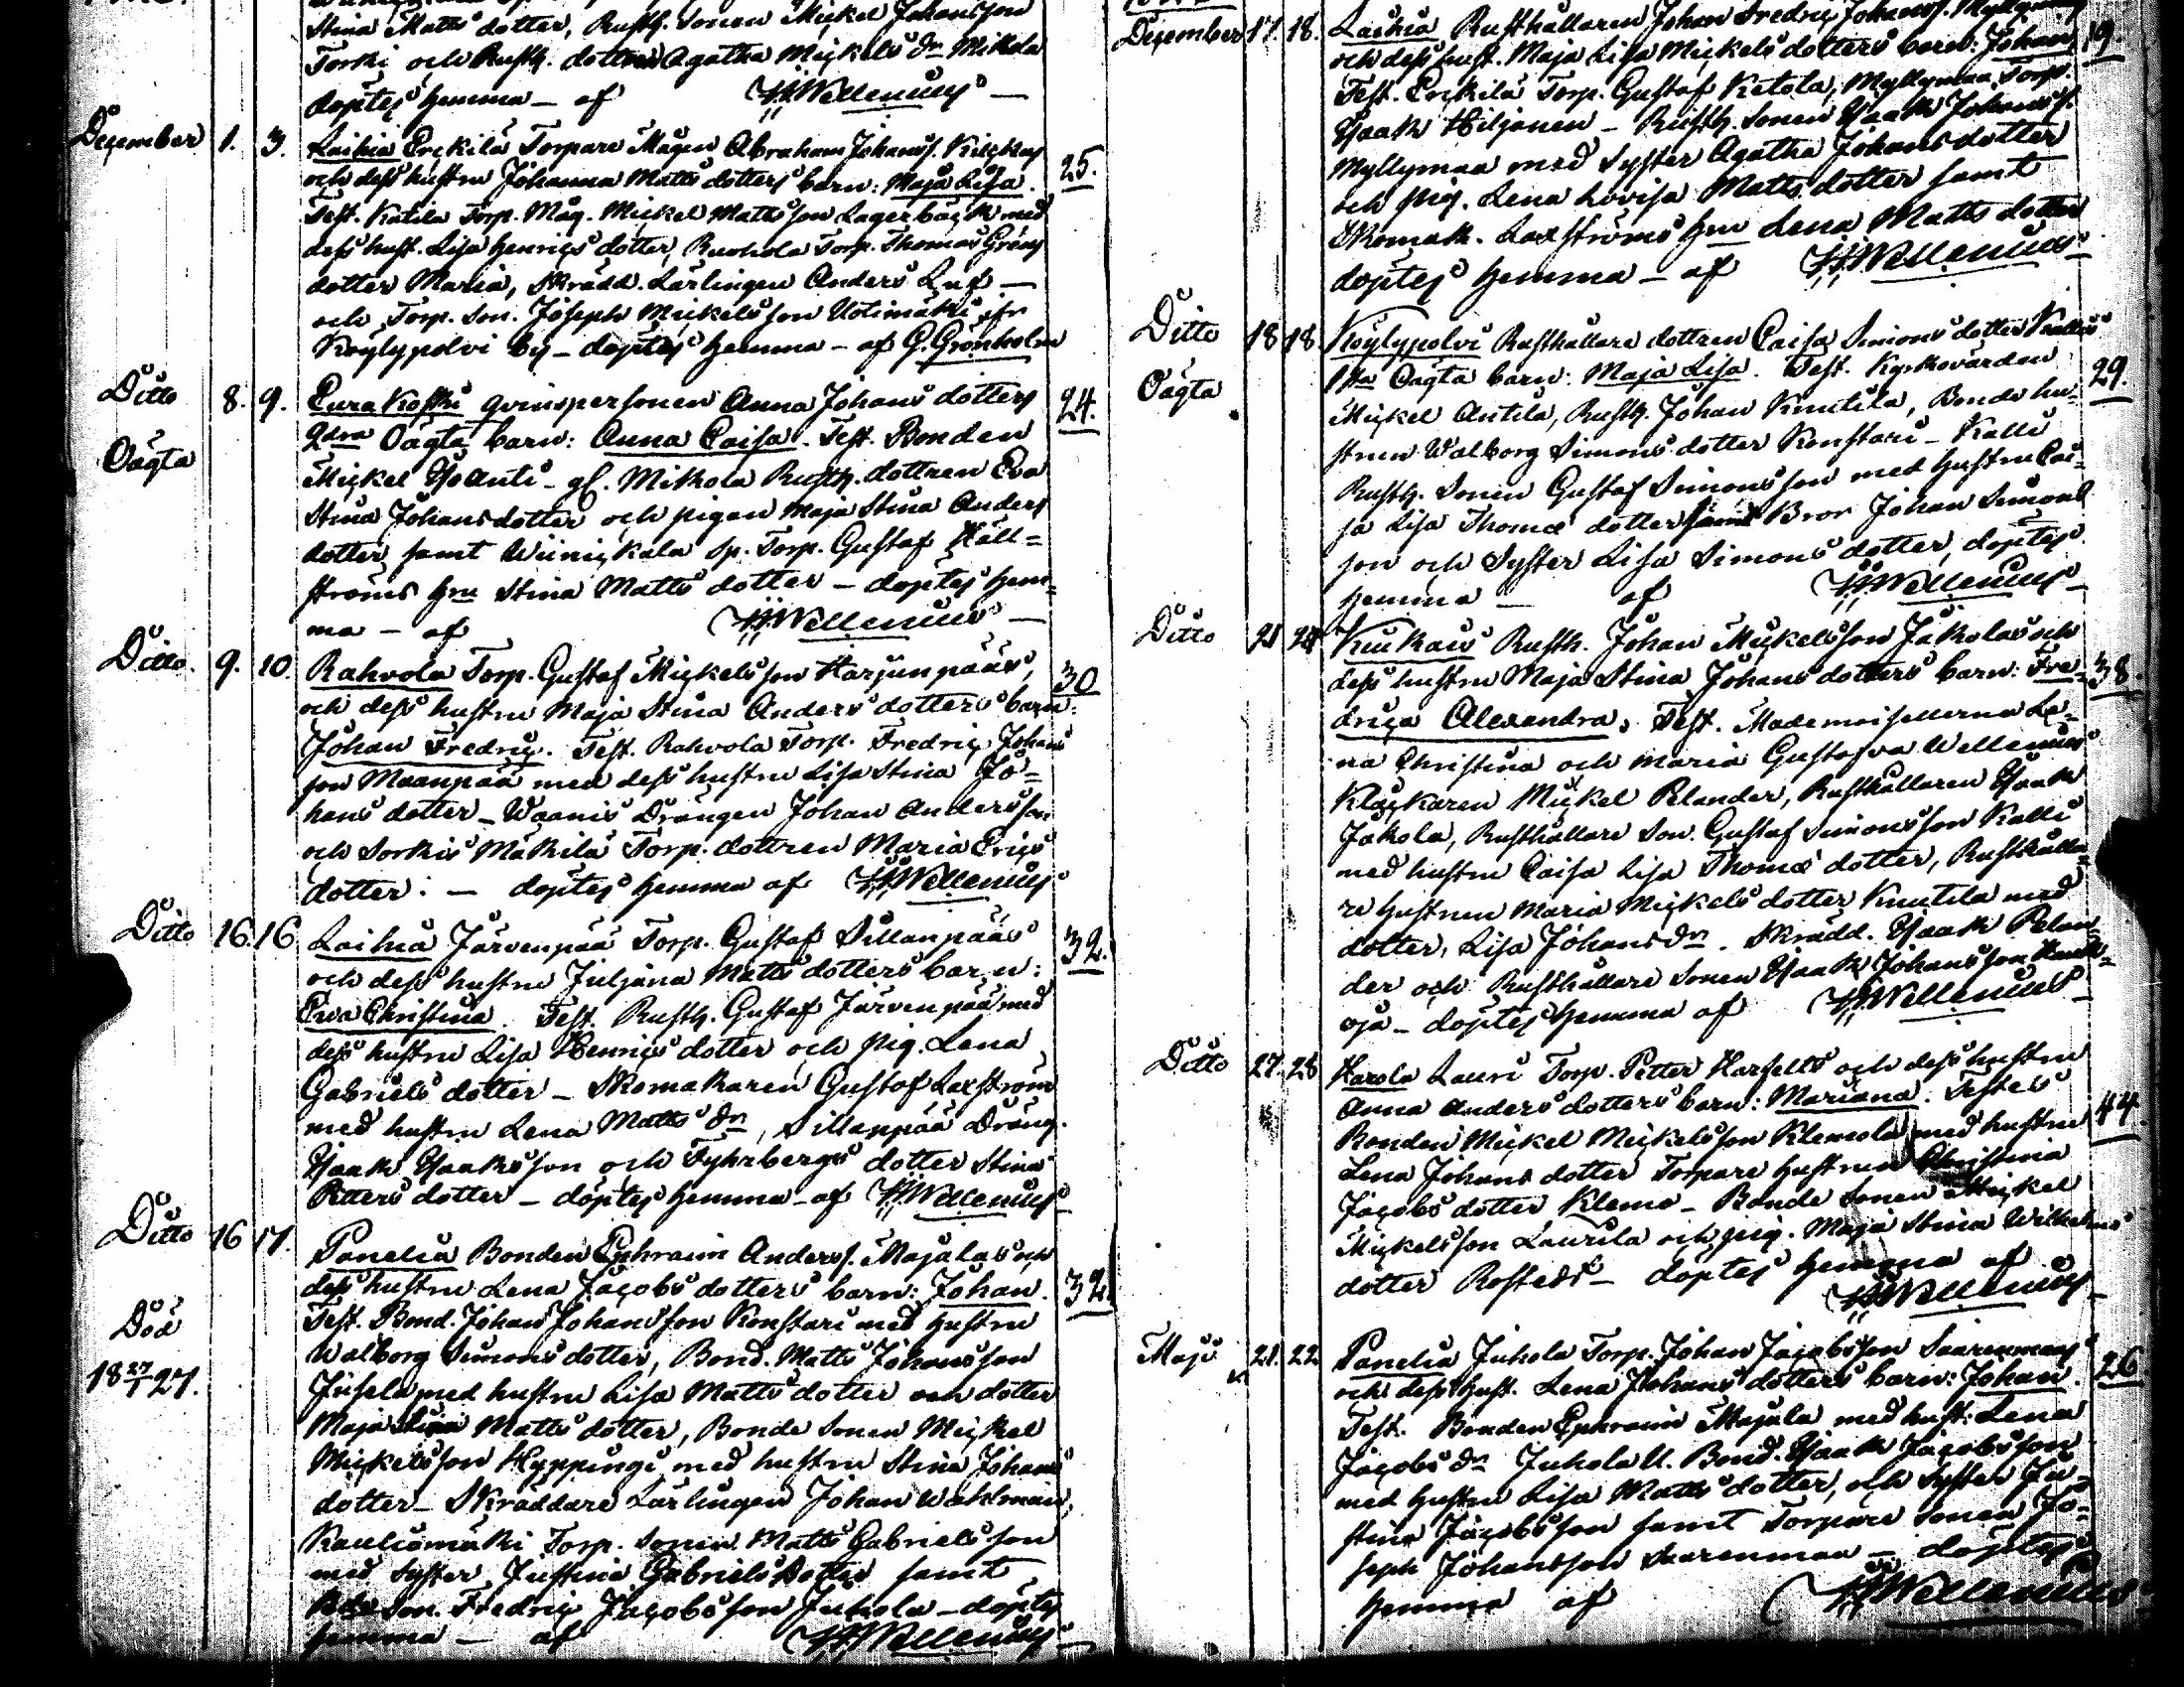 Stina Matts dotter, Rusth. Sonen Mickel Johansson
Torki och Rusth. dottren Agatha Mickels dr Mikola
döptes hemma – af HWellenius –
December 1. 3. Laihia Erckilä Torpare Mågen Abraham Johanss.
och dess hustru Johanna Matts dotters barn: Maja Lisa. 25.
Test. Katila Torp. Måg. Mickel Mattsson Lagerbäck med
dess hust. Lisa Henrics dotter, Ruohola Torp. Thomas Gröns
dotter Maria, Skrädd. Lärlingen Anders –
och Torp. Son. Joseph Mickelsson Uotimäki ifr
Köylypolvi by – döptes hemma – af G. Grönholm
Ditto 8. 9. Eura Koski qvinspersonen Anna Johans dotters 24.
Oägta 2dra Oägta barn: Anna Caisa. Test. Bonden
Mickel Yoanti – gl. Mikola Rusth. dottren Eva
Stina Johansdotter och pigan Maja Stina Anders
dotter samt Wiinickala sp. Torp. Gustaf Häll=
ströms hru Stina Matts dotter – döptes hem=
ma – af HWellenius –
Ditto. 9. 10. Rahvola Torp. Gustaf Mickelsson Harjunpääs, 30
och dess hustru Maja Stina Anders dotters barn:
Johan Fredric. Test. Rahvola Torp. Fredric Johans
son Maanpää med dess hustru Lisa Stina Jo=
hans dotter – Waanis Drängen Johan Andersson
och Sorkis Mäkilä Torp. dottren Maria Erics
dotter. – döptes hemma af HWellenius
Ditto 16 16 Laihia Järvenpää Torp. Gustaf Sillanpääs 32.
och dess hustru Juljana Matts dotters barn:
Ewa Christina. Test. Rusth. Gustaf Järvenpää med
dess hustru Lisa Henrics dotter och pig. Lena
Gabriels dotter – Skomakaren Gustaf Laxström
med hustru Lena Matts dr, Sillanpää Dräng.
Isaak Isaksson och Fyhrbergs dotter Stina
Petters dotter – döptes hemma – af HWellenius
Ditto 16 17. Panelia Bonden Ephraim Anderss. Majalas och
dess hustru Lena Jacobs dotters barn: Johan. 32
Död Test. Bond. Johan Johansson Konstari med hustru
Walborg Simons dotter, Bond. Matts Johansson
18 27/1 27. Jusela med hustru Lisa Matts dotter och dotter
Maja Lisa Matts dotter, Bonde Sonen Mickel
Mickelsson Hyppingi med hustru Stina Johans
dotter – Skräddare Lärlingen Johan Wahlman,
Kauliomäki Torp. Sonen Matts Gabrielsson
med Syster Justina Gabriels Dotter samt
Bde Son. Fredric Jacobsson Juhola – döptes
hemma – af HWellenius
December 17. 18. Laihia Rusthållaren Johan Fredric Johanss. Myllymaa
och dess hust. Maja Lisa Mickels dotters barn: Johan 19.
Test. Erckilä Torp. Gustaf Ketola, Myllymaa Torp.
Isaak Hiljanen – Rusth. Sonen Isaak Johanss.
Myllymaa med Syster Agatha Johansdotter
och pig. Lena Lovisa Matts dotter samt
Skomak. Laxströms hru Lena Matts dotter
döptes hemma – af HWellenius
Ditto 18 18. Köylypolvi Rusthållare dottren Caisa Simons dotter
Oägta 1sta Oägta barn: Maja Lisa. Test. Kyrkovärden 29.
Mickel Antila, Rusth. Johan Knutila, Bonde hu=
strun Walborg Simons dotter Konstari – Kalli
Rusth. Sonen Gustaf Simonsson med hustru Cai=
sa Lisa Thomæ dotter samt Bror Johan Simons
son och Syster Lisa Simons dotter, döptes
hemma – af HWellenius –
Ditto 21 24 Kiukais Rusth. Johan Mickelsson Jakolas och
dess hustru Maja Stina Johans dotters barn: Fre= 38.
drica Alexandra. Test. Mademoisellerna Le=
na Christina och Maria Gustafva Wellenius
Klåckaren Mickel Pelander, Rusthållaren Isaak
Jakola, Rusthållare Son. Gustaf Simonsson Kalli
med hustru Caisa Lisa Thomæ dotter, Rusthålla=
re hustrun Maria Mickels dotter Knutila med
dotter, Lisa Johans dr. Skrädd. Isaak Pelan=
der och Rusthållare Sonen Isaak Johansson
oja – döptes hemma af HWellenius
Ditto 27. 28 Harola Lauri Torp. Petter Harfelts och dess hustru
Anna Anders dotters barn: Mariana. Testes 44.
Bonden Mickel Mickelsson Klemola med hustru
Lena Johans dotter Torpare hustrun Christina
Jacobs dotter Klemo – Bonde Sonen Mickel
Mickelsson Laurila och pig. Maja Stina Wilhelms
dotter Rostedt – döptes hemma af
HWellenius
Maji 21. 22 Panelia Juhola Torp. Johan Jacobsson Saarenmaas
och dess hust. Lena Johans dotters barn: Johan. 26
Test. Bonden Ephraim Majala med hust. Lena
Jacobs dr Juhola U. Bond. Isaak Jacobsson
med hustru Lisa Matts dotter, och Syster Ju=
stina Jacobsson samt Torpare Sonen Jo=
seph Johansson Saarenmaa – döptes
hemma af HWellenius